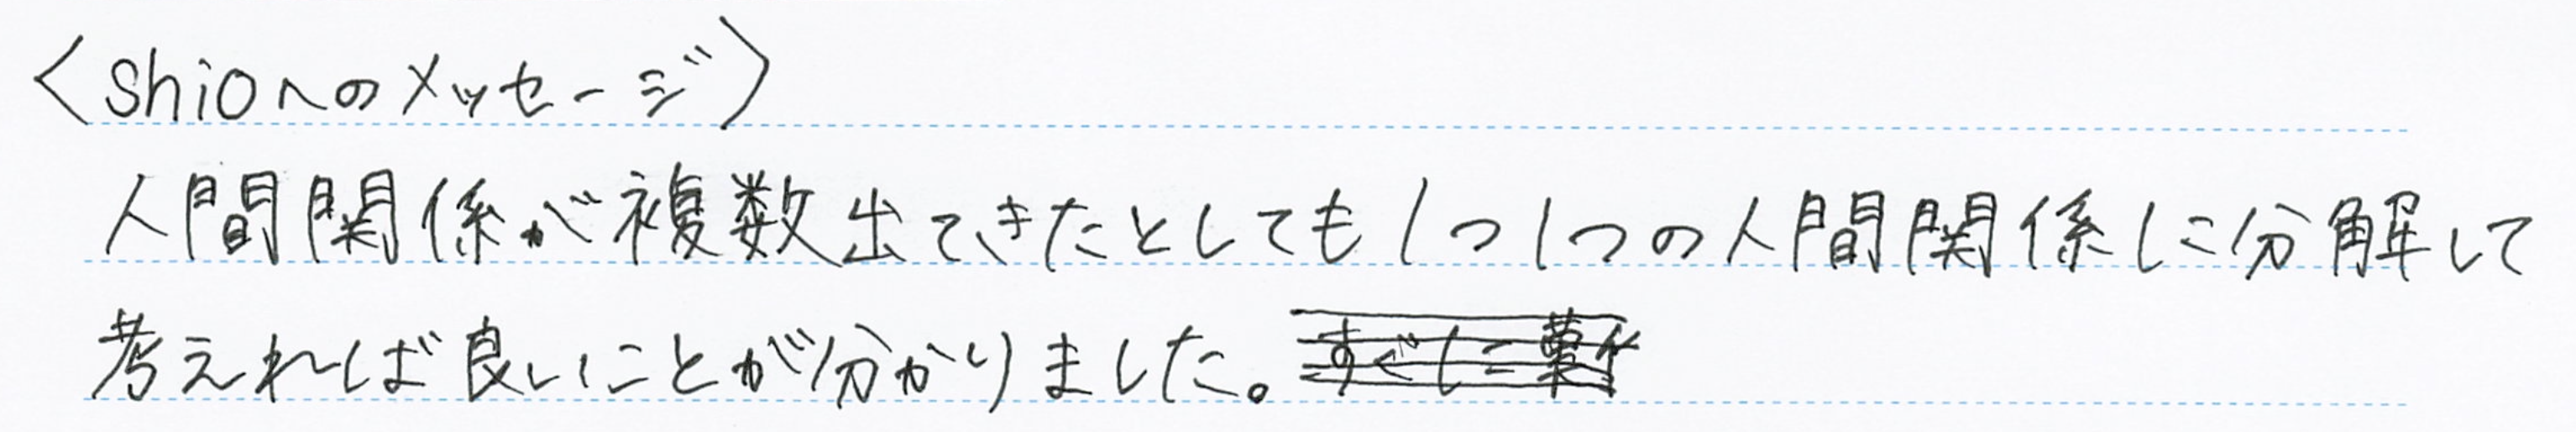 〈shioへのメッセージ〉
人間関係が複数出てきたとしても1つ1つの人間関係に分解して
考えれば良いことが分かりました。すぐに